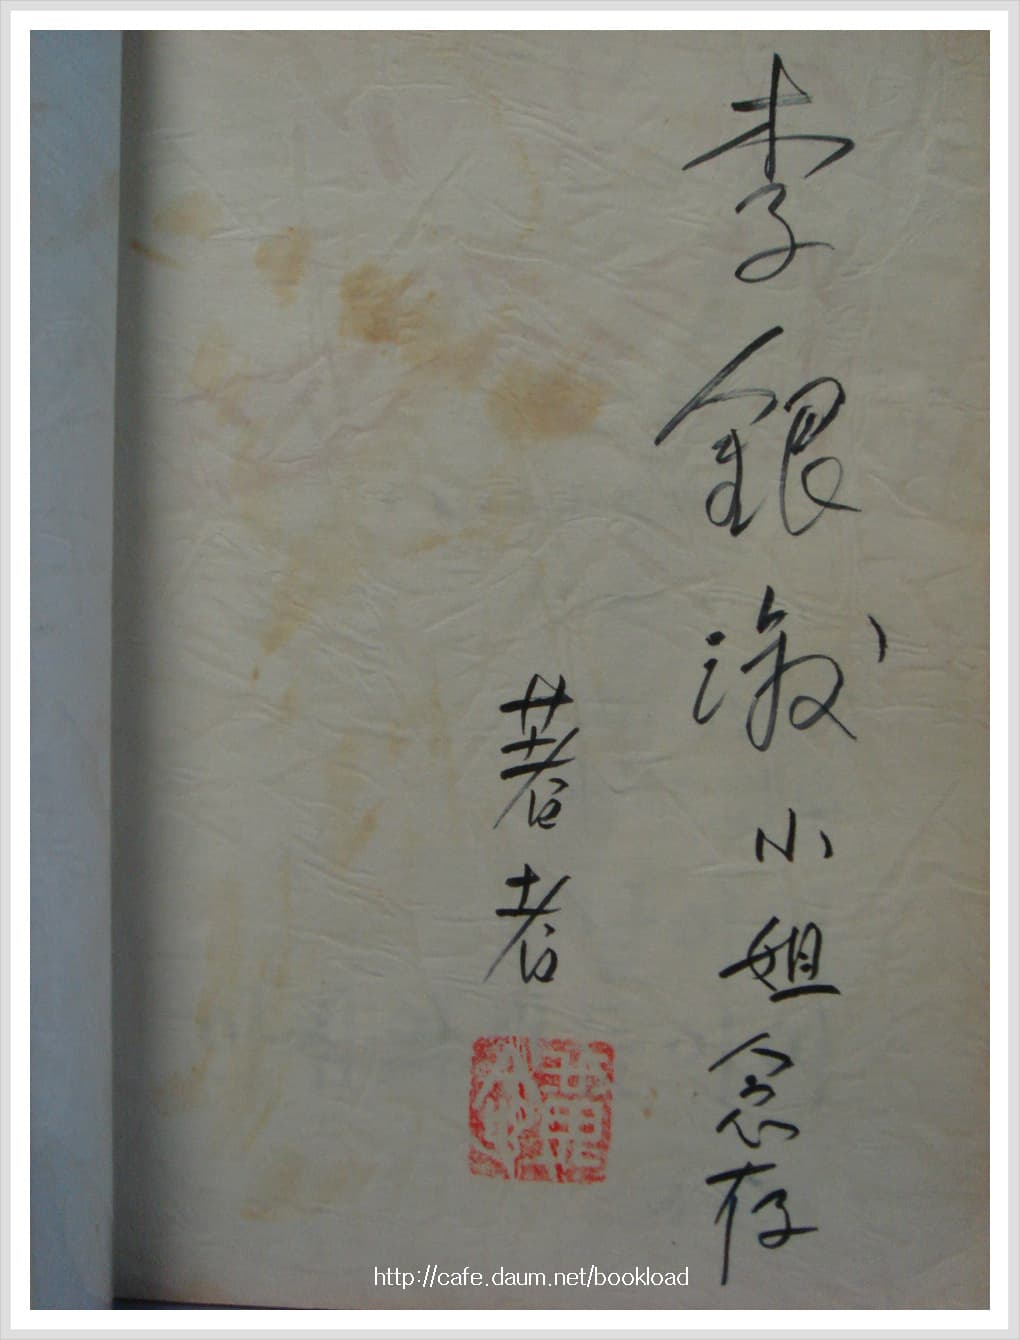 李銀淑小姐念存
著者
http://cafe.daum.net/bookload